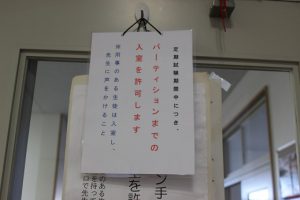 定期試験期間中につき、
パーティションまでの
入室を許可します
※用事のある生徒は入室し、
先生に声をかけること